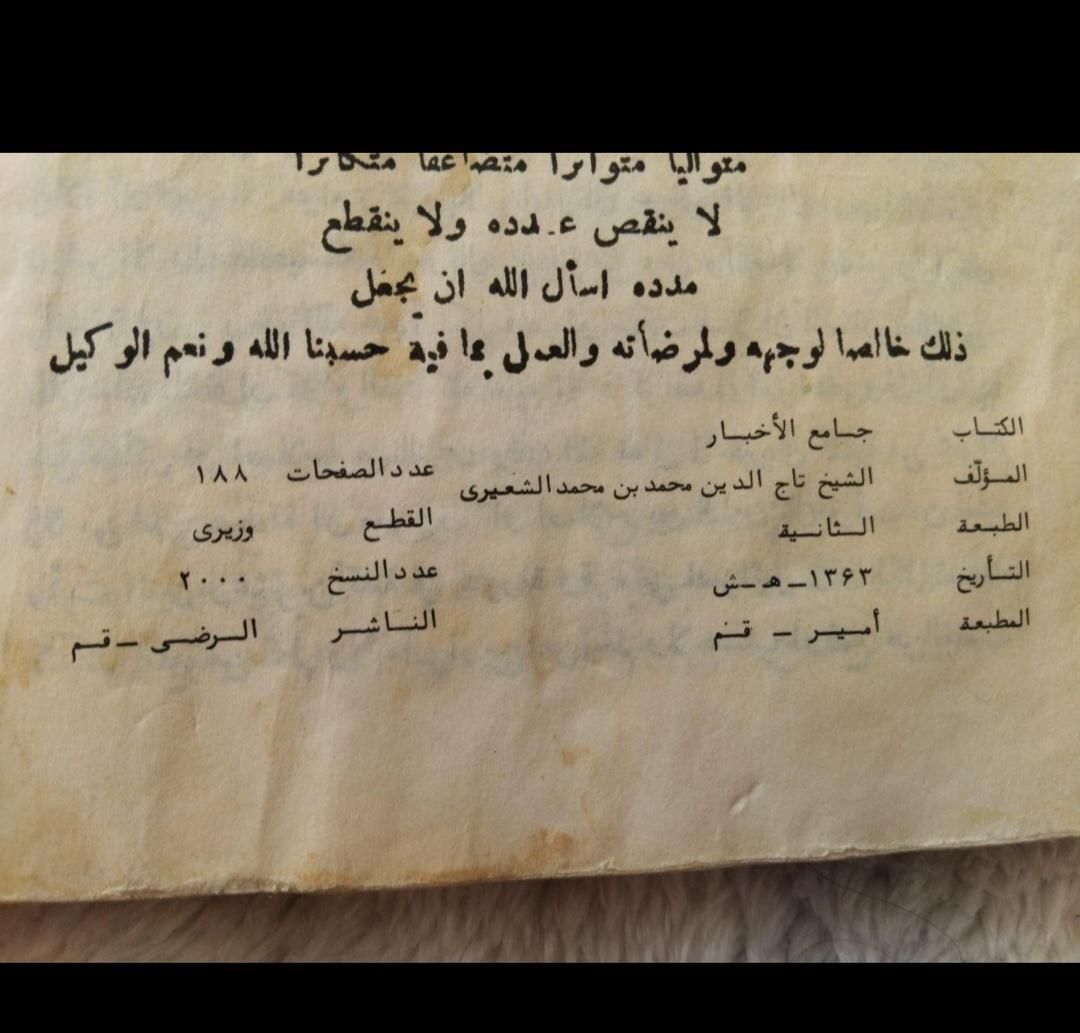 متواليا متواترا متضاعفا متكاثرا
لا ينقص عدده ولا ينقطع
مدده اسأل الله ان يجعل
ذلك خالصا لوجهه ولمرضأته والعمل بما فية حسبنا الله ونعم الوكيل
الكتاب جامع الأخبار
المؤلّف الشيخ تاج الدين محمد بن محمد الشعيرى عدد الصفحات ١٨٨
الطبعة الثانية القطع وزيرى
التأريخ ١٣۶٣ـ هـ ـش عدد النسخ ٢٠٠٠
المطبعة أمير ـ قم الناشر الرضى ـ قم